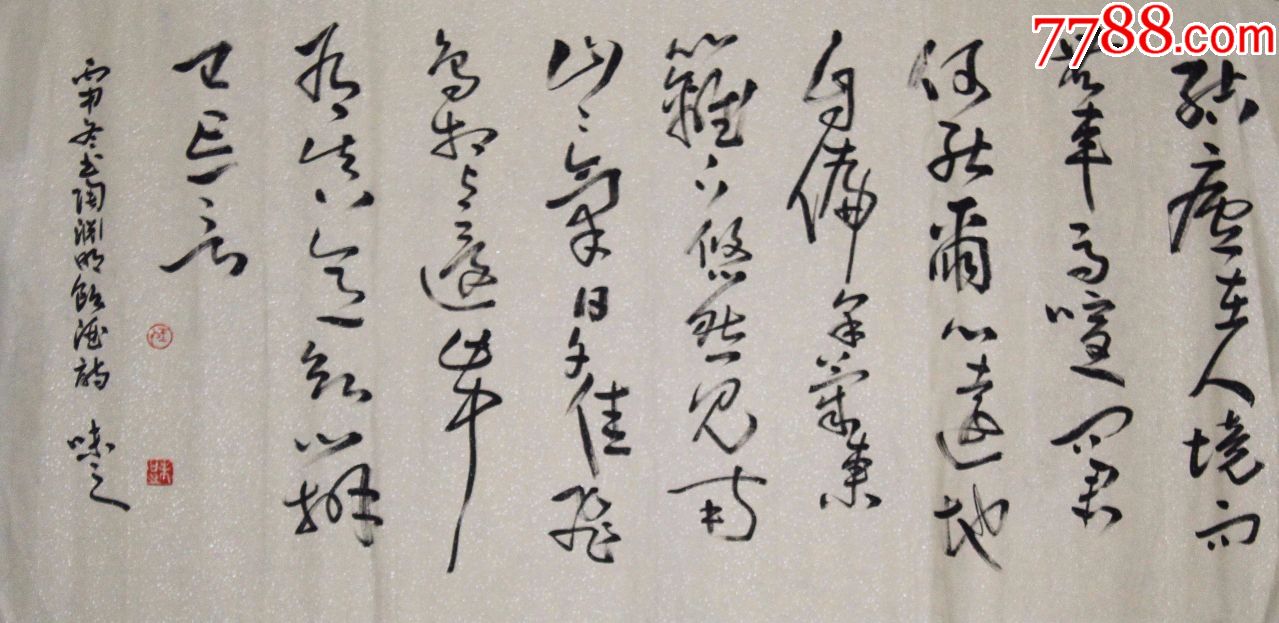 7788.com
結廬在人境而
無車馬喧問君
何能爾心遠地
自偏采菊東
籬下悠然見南
山〻氣日夕佳飛
鳥相與還此中
有真意欲辨
已忘言
冬書陶淵明飲酒詩 味之